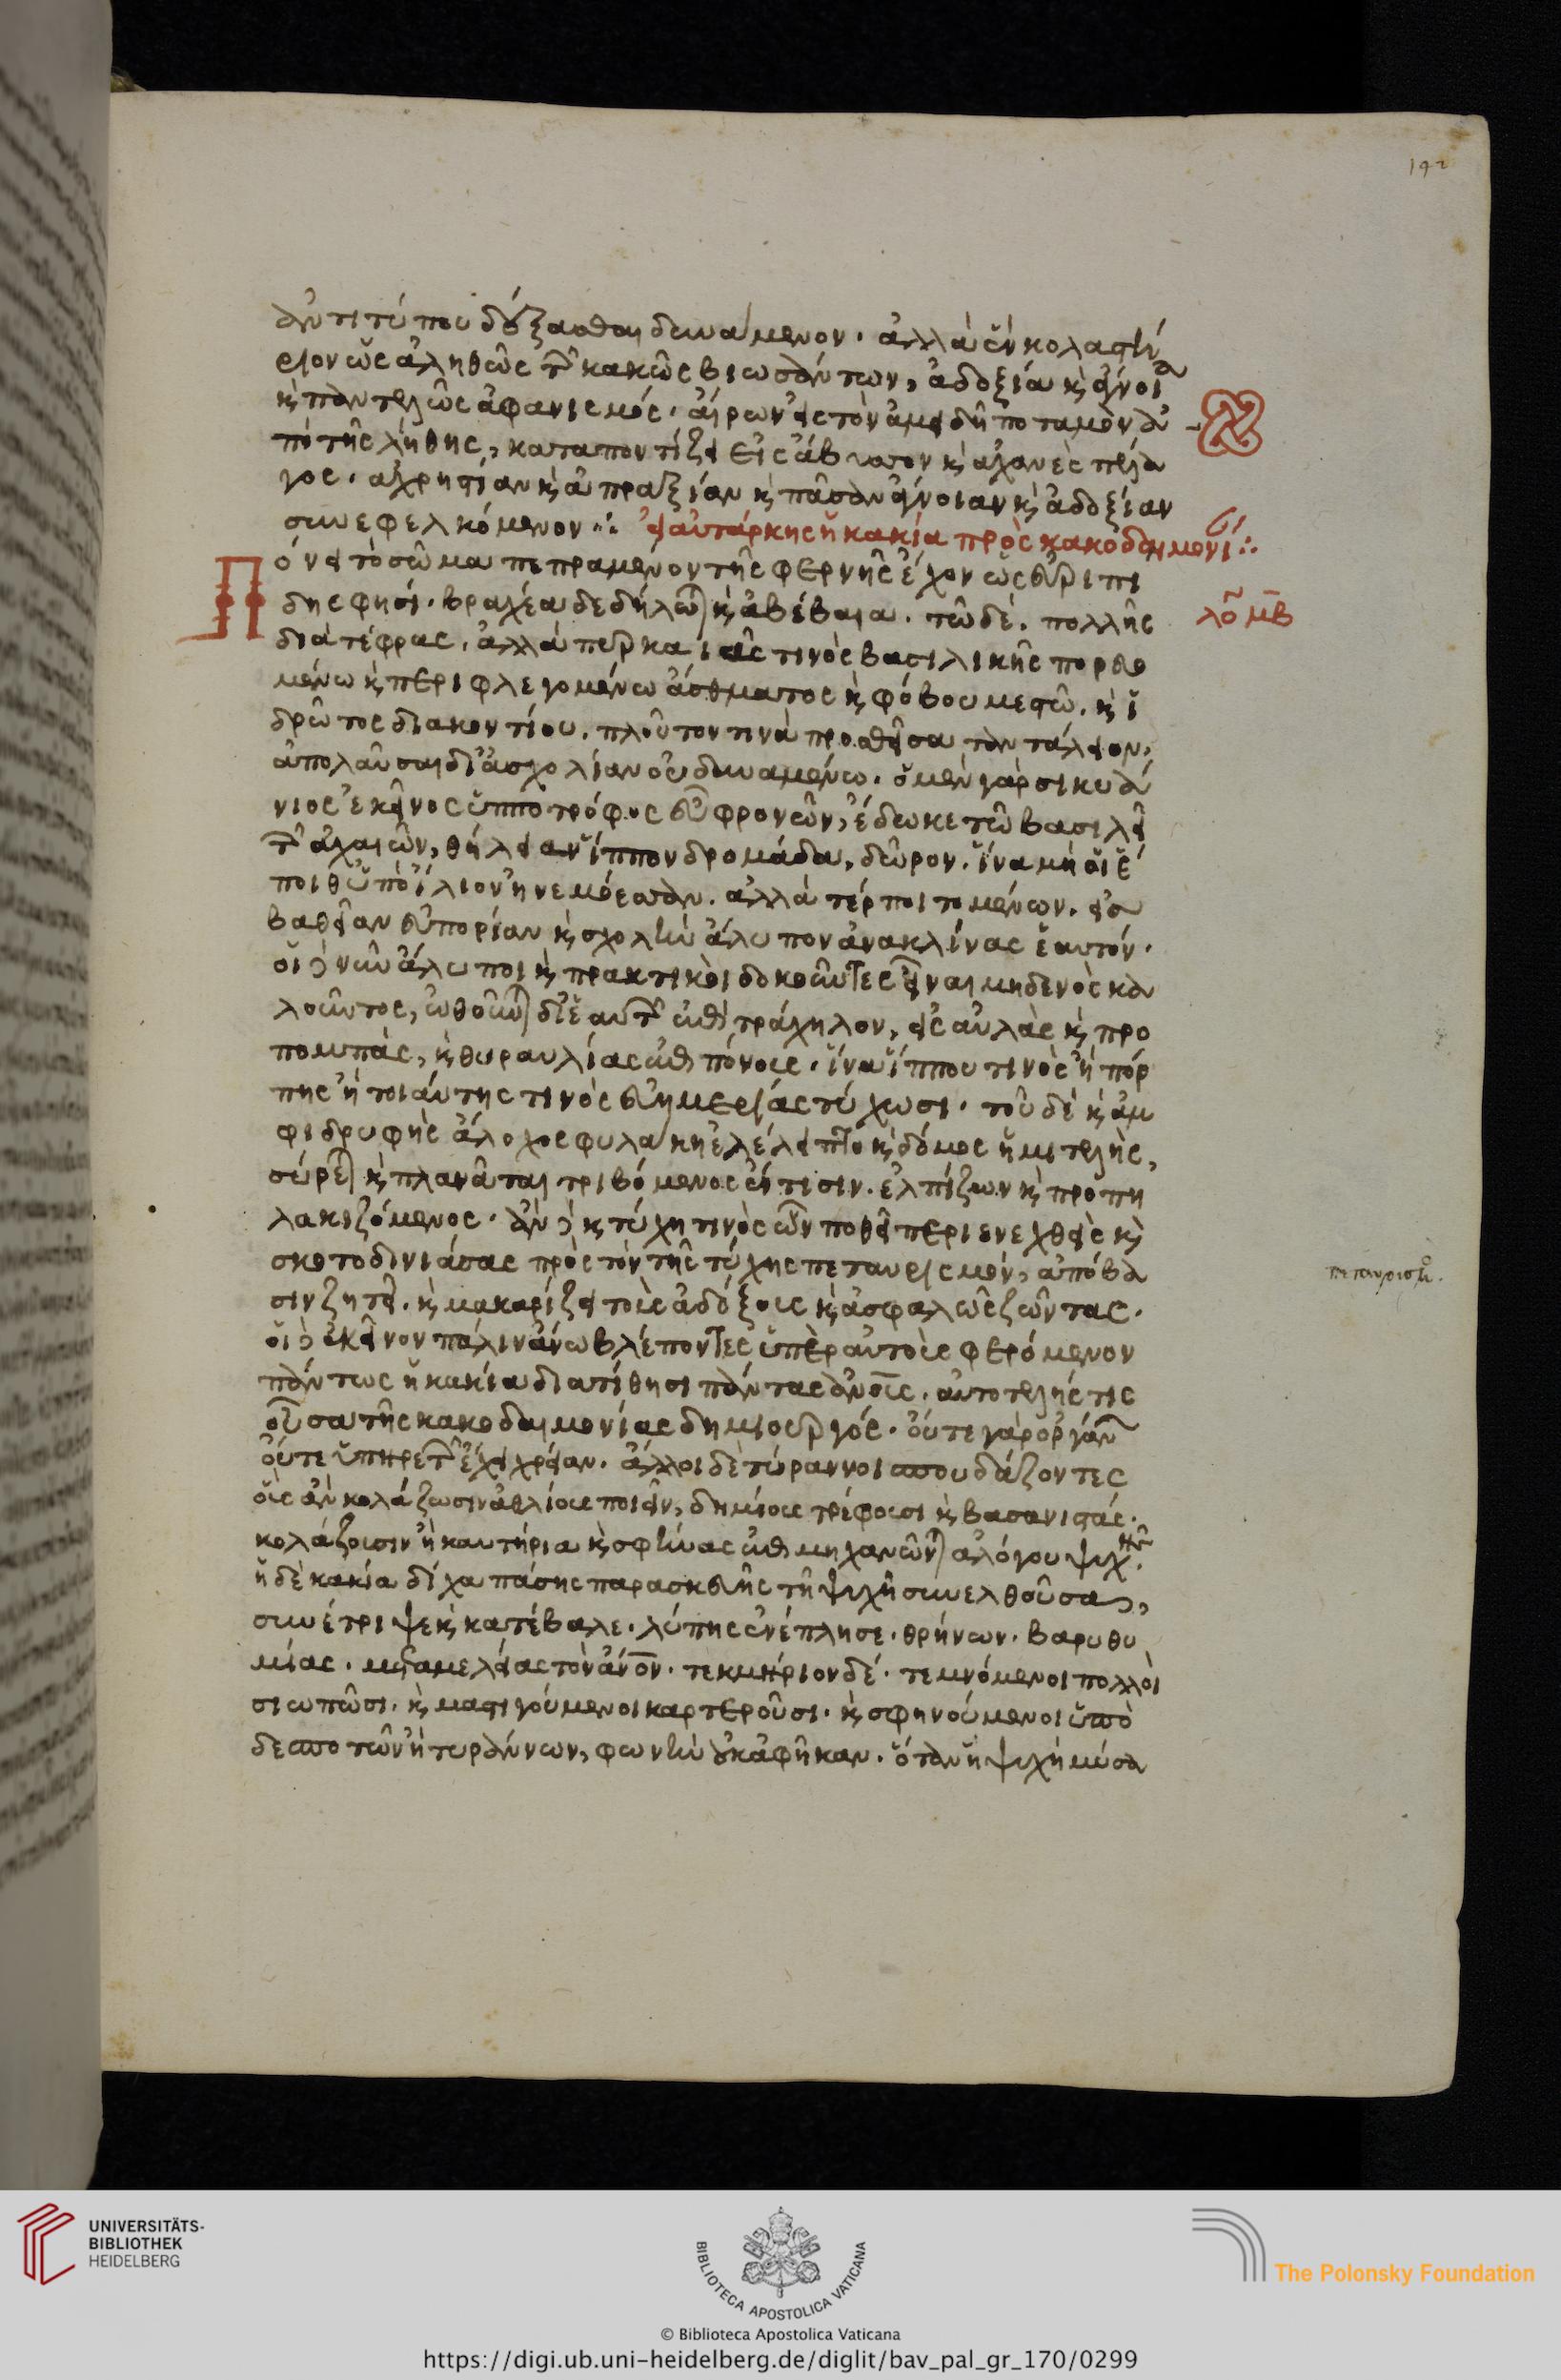 192
ἀντιτύπου δέξασθαι δυνάμενον. ἀλλὰ ἓν κολαστή
ριον ὡς ἀληθῶς τῶν κακῶς βιωσάντων, ἀδοξία κ̀ ἄγνοια
κ̀ παντελῶς ἀφανισμός. αἴρων εἰς τὸν ἀμειδῆ ποταμὸν ἀ
πὸ τῆς λήθης, καταποντίζει εἰς ἄβυσσον κ̀ ἀχανὲς πέλα
γος. ἀχρηστίαν κ̀ ἀπραξίαν κ̀ πᾶσαν ἄγνοιαν κ̀ ἀδοξίαν
συνεφελκόμενον ·:· εἰ αὐτάρκης ἡ κακία πρὸς κακοδαιμονί ·:·
Πόνει τὸ σῶμα πεπραμένον τῆς φερνῆς ἔχον ὡς εὐριπί
δης φησί. βραχέα δὲ δήλων κ̀ ἀβέβαια. τῷ δὲ. πολλῆς
λο μβ
διὰ τέφρας. ἀλλὰ πυρκαιᾶς τινὸς βασιλικῆς πορευο
μένω κ̀ περιφλεγομένω ἄσθματος κ̀ φόβου μεστῶ. κ̀ ἱ
δρῶτος διαποντίου. πλοῦτον τινὰ προσθεῖσα τανταλειον,
ἀπολαῦσαι δι' ἀσχολίαν οὐ δυναμένω. ὁ μὲν γὰρ σικυώ
νιος ἐκεῖνος ἱπποτρόφος εὖ φρονῶν, ἔδωκε τῶ βασιλεῖ
τῶν ἀχαιῶν, θήλειαν ἵππον δρομάδα, δῶρον. ἵνα μή οἱ ἕ
ποιθ' ὑπὸ ἴλιον ἠνεμόεσσαν. ἀλλὰ τέρποιτο μένων. εἰς
βαθεῖαν εὐπορίαν κ̀ σχολὴν ἄλυπον ἀνακλίνας ἑαυτόν.
οἱ δὲ νῦν ἄλυποι κ̀ πρακτικοὶ δοκοῦντες εἶναι μηδενὸς κα
λοῦντος, ὠθοῦνται δι' ἑαυτῶν ἐπὶ τράχηλον, εἰς αὐλὰς κ̀ προ
πομπὰς, κ̀ θυραυλίας ἐπιπόνους. ἵνα ἵππου τινὸς ἢ πόρ
πης ἢ τοιαύτης τινὸς εὐημερίας τύχωσι. τοῦ δὲ κ̀ ἀμ
φιδρυφὴς ἄλοχος φυλάκη ἐλέλειπτο κ̀ δόμος ἡμιτελὴς,
σύρεται κ̀ πλανᾶται τριβόμενος ἔν τισιν. ἐλπίζων κ̀ προπη
λακιζόμενος. ἂν δὲ κ̀ τύχη τινὸς ὧν ποθεῖ περιενεχθεὶς κ̀
σκοτοδινιάσας πρὸς τὸν τῆς τύχης πεταυρισμὸν, ἀπόβα
πεταυρισμός.
σιν ζητεῖ. κ̀ μακαρίζει τοὺς ἀδόξους κ̀ ἀσφαλῶς ζῶντας.
οἱ δὲ ἐκεῖνον πάλιν ἄνω βλέποντες ὑπὲρ αὐτοὺς φερόμενον
πάντως ἡ κακία διατίθησι πάντας ἀνους. αὐτοτελής τις
οὖσα τῆς κακοδαιμονίας δημιουργός. οὔτε γὰρ ὀργάνων
οὔτε ὑπηρετῶν ἔχει χρείαν. ἄλλοι δὲ τύραννοι σπουδάζοντες
οὓς ἂν κολάζωσιν ἀθλίους ποιεῖν, δημίους τρέφουσι κ̀ βασανιστάς.
κολάζουσιν ἢ καυτήρια κ̀ σφῆνας ἐπιμηχανῶνται ἀλόγου ψυχῆς.
ἡ δὲ κακία δίχα πάσης παρασκευῆς τῆ ψυχῆ συνελθοῦσα,
συνέτριψε κ̀ κατέβαλε. λύπης ἐνέπλησε. θρήνων. βαρυθυ
μίας. μεταμελείας τὸν ἄνον. τεκμήριον δέ. τεμνόμενοι πολλοὶ
σιωπῶσι. κ̀ μαστιγούμενοι καρτεροῦσι. κ̀ σφηνούμενοι ὑπὸ
δεσποτῶν ἢ τυράννων, φωνὴν οὐκ ἀφῆκαν. ὅταν ἡ ψυχὴ μύσα
UNIVERSITÄTS-
BIBLIOTHEK
HEIDELBERG
BIBLIOTECA APOSTOLICA VATICANA
The Polonsky Foundation
© Biblioteca Apostolica Vaticana
https://digi.ub.uni-heidelberg.de/diglit/bav_pal_gr_170/0299